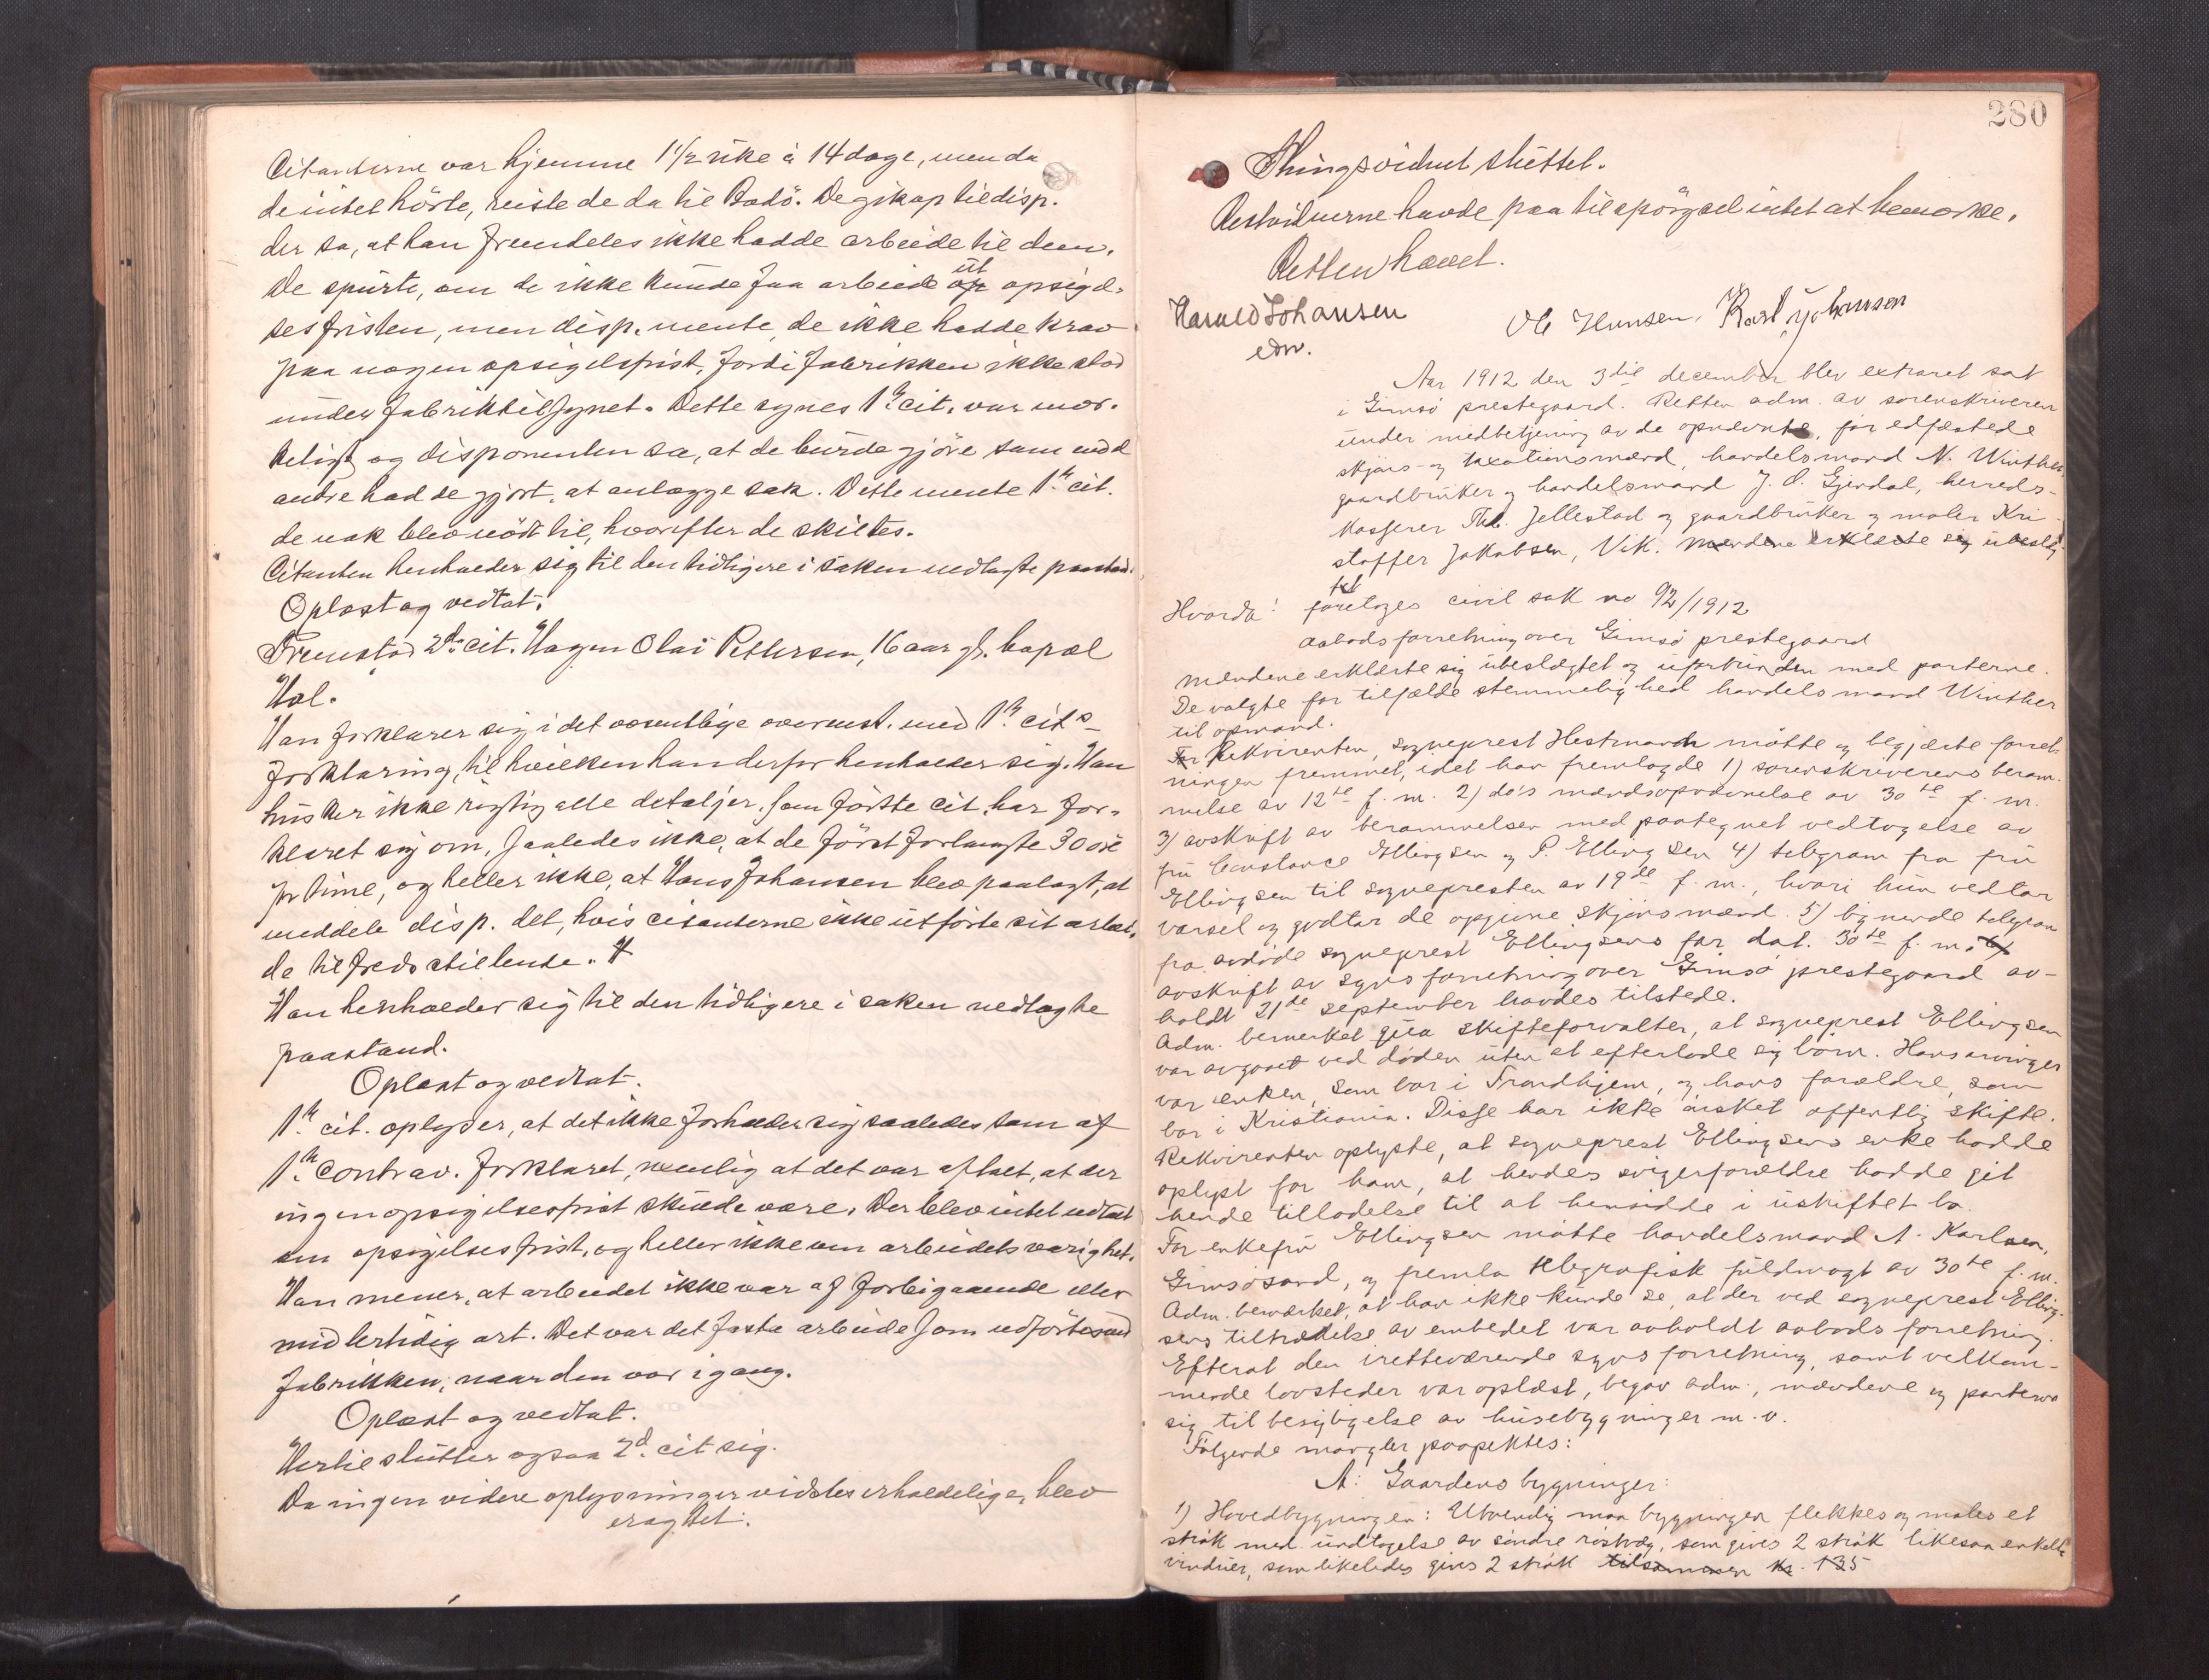 Citanterne var hjemme 1 1/2 uke à 14 dage, men da
de intet hörte, reiste de da til Bodö. De gik op til disp.
der sa, at han fremdeles ikke hadde arbeide til dem.
De spurte, om de ikke kunde faa arbeide op ut opsigel-
sesfristen, men disp. mente, de ikke hadde krav
paa nogen opsigelsfrist, fordi fabrikken ikke stod
under fabriktilsynet. Dette synes 1ste cit. var mær-
keligt og disponenten sa, at de burde gjöre som
andre hadde gjort, at anlægge sak. Dette mente 1ste cit.
de nok blev nödt til, hvorefter de skiltes.
Citanten henholder sig til den tidligere i saken nedlagte paastand.
Oplæst og vedtat.
Fremstod 2den cit. Hagen Olai Pettersen, 16 aar gl. bopæl
Hol.
Han forklarer sig i det væsentlige overenst. med 1ste cits
forklaring, til hvilken han derfor henholder sig. Han
husker ikke rigtig alle detaljer, som förste cit. har for-
klaret sig om, saaledes ikke, at de först forlangte 30 öre
pr time, og heller ikke, at Hans Johansen blev paalagt, at
meddele disp. det, hvis citanterne ikke utförte sit arbei-
de tilfredsstillende.
Han henholder sig til den tidligere i saken nedlagte
paastand.
Oplæst og vedtat.
1ste cit. oplyser, at det ikke forholder sig saaledes som af
1ste contrav. forklaret, nemlig at det var aftalt, at der
ingen opsigelsesfrist skulde være. Der blev intet
om opsigelsesfrist, og heller ikke om arbeidets varighet.
Han mener, at arbeidet ikke var af forbigaaende eller
midlertidig art. Det var det faste arbeide som udförtes ved
fabrikken, naar den var igang.
Oplæst og vedtat.
Hertil slutter ogsaa 2d cit sig.
Da ingen videre oplysninger vidstes erholdelige, blev
eragtet:
280
Thingsvidnet sluttet.
Retsvidnerne havde paa tilspörgsel intet at bemærke.
Retten hævet.
Harald Johansen
edv.
Ole Hansen. Karl Johansen
Aar 1912 den 3die december blev extraret sat
i Gimsö prestegaard. Retten adm. av sorenskriveren
under medbetjening av de opnævnte, før edfæstede
skjøns- og taxationsmænd, handelsmand N. Winther,
gaardbruker og handelsmand J. O. Gjerdal, herreds-
kasserer Jellestad og gaardbruker og maler Kri-
stoffer Jakobsen, Vik. Mændene erklærte sig ubeslæg-
tet
Hvorda: foretages civil sak no 92/1912
aabodsforretning over Gimsö prestegaard
Mændene erklærte sig ubeslægtet og uforbunden med parterne.
De valgte for tilfælde stemmelighed handelsmand Winther
til opmand.
For Rekvirenten, sogneprest Hestmandr møtte og begjærte forret-
ningen fremmet, idet han fremlagde 1) sorenskriverens beram-
melse av 12te f. m. 2) do's mændsopnævnelse av 30te f. m.
3) avskrift av berammelsen med paategnet vedtagelse av
fru Constance Ellingsen og P. Ellingsen 4) telegram fra fru
Ellingsen til sognepresten av 19de f. m., hvori hun vedtar
varsel og godtar de opgivne skjønsmænd. 5) lignende telegram
fra avdöde sogneprest Ellingsens far dat. 30te f. m. 6)
avskrift av synsforretning over Gimsö prestegaard av-
holdt 21de september havdes tilstede.
Adm. bemerket qua skifteforvalter, at sogneprest Ellingsen
var avgaaet ved døden uten at efterlade sig børn. Hans arvinger
var enken, som bor i Trondhjem, og hans forældre, som
bor i Kristiania. Disse har ikke ønsket offentlig skifte.
Rekvirenten oplyste, at sogneprest Ellingsens enke hadde
oplyst for ham, at hendes svigerforældre hadde git
hende tilladelse til at hensidde i uskiftet bo.
For enkefru Ellingsen møtte handelsmand A. Karlsen,
Gimsøsand, og fremla telegrafisk fuldmagt av 30te f. m.
Adm. bemærket, at han ikke kunde se, at der ved sogneprest Elling-
sens tiltrædelse av embedet var avholdt aabodsforretning.
Efterat den iretteværende synsforretning, samt vedkom-
mende lovsteder var oplæst, begav adm., mændene og parterne
sig til besigtigelse av husebygninger m. v.
Følgende mangler paapektes:
A: Gaardens bygninger:
1) Hovedbygningen: Utvendig maa bygningen flekkes og males et
strøk med undtagelse av søndre røstvæg, som gives 2 strøk likesaa enkelte
vinduer, som likeledes gives 2 strøk tilsammen kr. 135